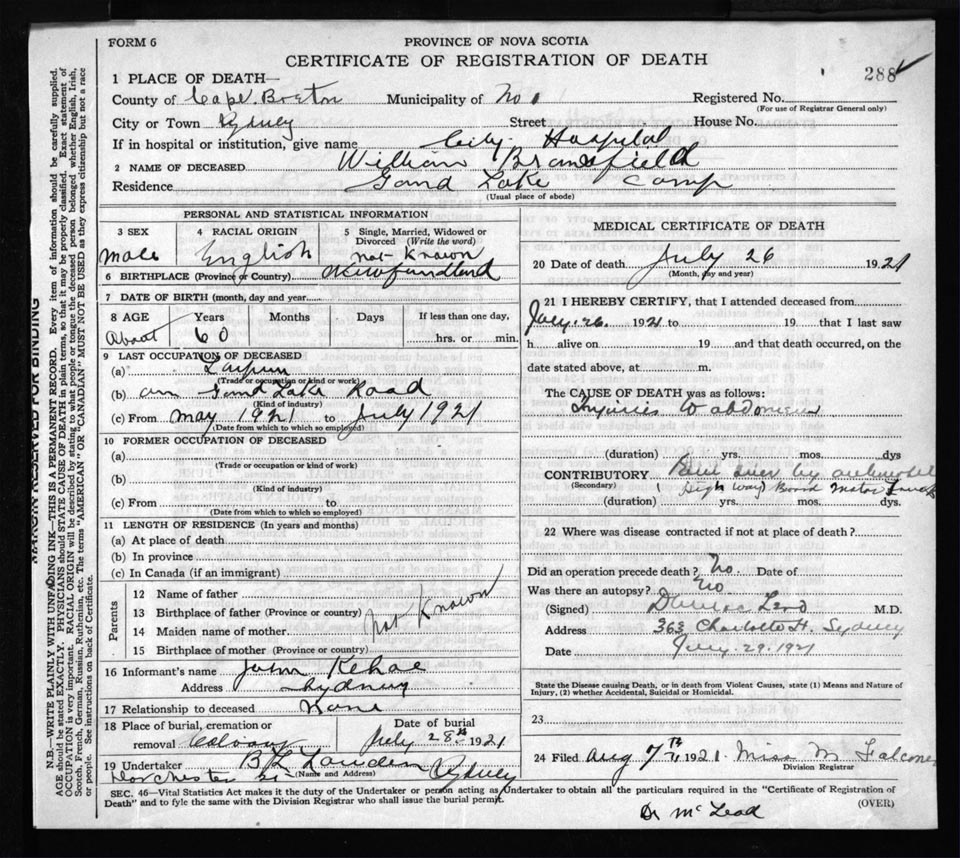 FORM 6
PROVINCE OF NOVA SCOTIA
CERTIFICATE OF REGISTRATION OF DEATH
288
1 PLACE OF DEATH—
County of Cape Breton Municipality of No 1 Registered No.
(For use of Registrar General only)
City or Town Sydney Street House No.
If in hospital or institution, give name City Hospital
2 NAME OF DECEASED William Bransfield
Residence Gand Lake Camp
(Usual place of abode)
PERSONAL AND STATISTICAL INFORMATION
3 SEX
Male
4 RACIAL ORIGIN
English
5 Single, Married, Widowed or Divorced (Write the word)
not Known
6 BIRTHPLACE (Province or Country) Newfoundland
7 DATE OF BIRTH (month, day and year)
8 AGE Years Months Days If less than one day,
About 60 hrs. or min.
9 LAST OCCUPATION OF DECEASED
(a)
(Trade or occupation or kind of work)
(b) on Gand Lake Road
(Kind of industry)
(c) From May 1921 to July 1921
(Date from which to which so employed)
10 FORMER OCCUPATION OF DECEASED
(a)
(Trade or occupation or kind of work)
(b)
(Kind of industry)
(c) From to
(Date from which to which so employed)
11 LENGTH OF RESIDENCE (In years and months)
(a) At place of death
(b) In province
(c) In Canada (if an immigrant)
Parents
12 Name of father
13 Birthplace of father (Province or country)
14 Maiden name of mother
15 Birthplace of mother (Province or country)
not Known
16 Informant's name John Kehoe
Address Sydney
17 Relationship to deceased None
18 Place of burial, cremation or removal Calvary
Date of burial July 28th 1921
19 Undertaker B L
Dorchester St Sydney
(Name and Address)
MEDICAL CERTIFICATE OF DEATH
20 Date of death July 26 1921
(Month, day and year)
21 I HEREBY CERTIFY, that I attended deceased from
July. 26. 1921 to 19 that I last saw
h alive on 19 and that death occurred, on the
date stated above, at m.
The CAUSE OF DEATH was as follows:
Injuries to abdomen
(duration) yrs. mos. days
CONTRIBUTORY Run over by automobile
(Secondary) (High Way Board Motor Truck
(duration) yrs. mos. dys.
22 Where was disease contracted if not at place of death?
Did an operation precede death? No. Date of
Was there an autopsy? No.
(Signed) M.D.
Address 363 Charlotte St. Sydney
Date July. 29. 1921
State the Disease causing Death, or in death from Violent Causes, state (1) Means and Nature of
Injury, (2) whether Accidental, Suicidal or Homicidal.
23
24 Filed Aug 7th, 1921. Miss M Falconer
Division Registrar
SEC. 46—Vital Statistics Act makes it the duty of the Undertaker or person acting as Undertaker to obtain all the particulars required in the "Certificate of Registration of
Death" and to fyle the same with the Division Registrar who shall issue the burial permit.
(OVER)
Dr McLeod
MARGIN RESERVED FOR BINDING
N.B.—WRITE PLAINLY WITH UNFADING INK—THIS IS A PERMANENT RECORD. Every item of information should be carefully supplied.
AGE should be stated EXACTLY. PHYSICIANS should STATE CAUSE OF DEATH in plain terms, so that it may be properly classified. Exact statement of
OCCUPATION is very important. RACIAL ORIGIN will be described by stating to what people or tongue the deceased person belonged, whether English, Irish,
Scotch, French, German, Russian, Ruthenian, etc. The terms "AMERICAN" OR "CANADIAN" MUST NOT BE USED as they express citizenship but not a race
or people. See instructions on back of Certificate.